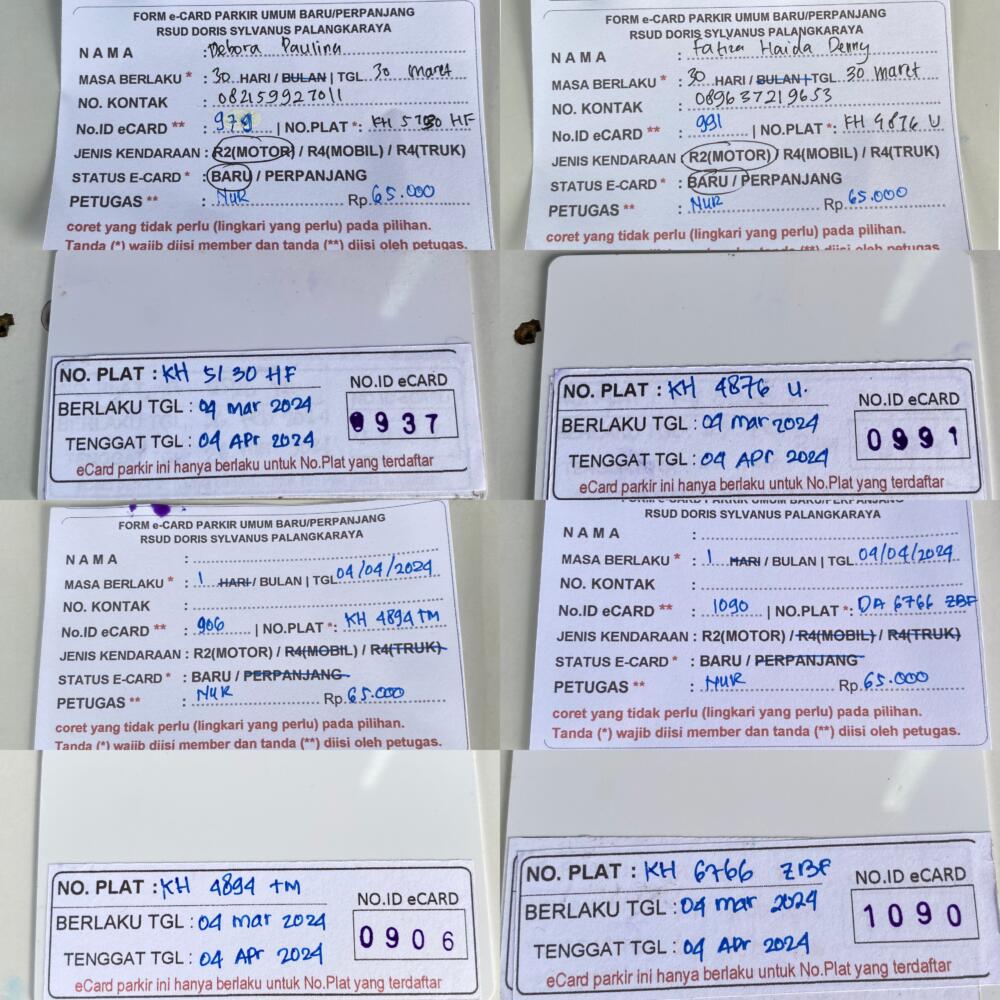 FORM e-CARD PARKIR UMUM BARU/PERPANJANG
RSUD DORIS SYLVANUS PALANGKARAYA
NAMA : Debora Paulina
MASA BERLAKU * : 30 HARI / BULAN | TGL 30 maret
NO. KONTAK : 082159927011
No.ID eCARD ** : | NO.PLAT *: KH HF
JENIS KENDARAAN : R2(MOTOR) / R4(MOBIL) / R4(TRUK)
STATUS E-CARD * : BARU / PERPANJANG
PETUGAS ** : NUR Rp 65.000
coret yang tidak perlu (lingkari yang perlu) pada pilihan.
Tanda (*) wajib diisi member dan tanda (**) diisi oleh petugas.
FORM e-CARD PARKIR UMUM BARU/PERPANJANG
RSUD DORIS SYLVANUS PALANGKARAYA
NAMA : Haida Denny
MASA BERLAKU * : 30 HARI / BULAN | TGL 30 maret
NO. KONTAK : 089637219653
No.ID eCARD ** : 991 | NO.PLAT *: KH 4876 U
JENIS KENDARAAN : R2(MOTOR) / R4(MOBIL) / R4(TRUK)
STATUS E-CARD * : BARU / PERPANJANG
PETUGAS ** : NUR Rp 65.000
coret yang tidak perlu (lingkari yang perlu) pada pilihan.
NO. PLAT : KH 5130 HF
NO.ID eCARD
BERLAKU TGL : 04 mar 2024
0937
TENGGAT TGL : 04 Apr 2024
eCard parkir ini hanya berlaku untuk No.Plat yang terdaftar
NO. PLAT : KH 4876 U.
NO.ID eCARD
BERLAKU TGL : 04 mar 2024
0991
TENGGAT TGL : 04 APr 2024
eCard parkir ini hanya berlaku untuk No.Plat yang terdaftar
FORM e-CARD PARKIR UMUM BARU/PERPANJANG
RSUD DORIS SYLVANUS PALANGKARAYA
NAMA :
MASA BERLAKU * : 1 HARI / BULAN | TGL 04/04/2024
NO. KONTAK :
No.ID eCARD ** : 906 | NO.PLAT *: KH 4894 TM
JENIS KENDARAAN : R2(MOTOR) / R4(MOBIL) / R4(TRUK)
STATUS E-CARD * : BARU / PERPANJANG
PETUGAS ** : NUR Rp 65.000
coret yang tidak perlu (lingkari yang perlu) pada pilihan.
Tanda (*) wajib diisi member dan tanda (**) diisi oleh petugas.
RSUD DORIS SYLVANUS PALANGKARAYA
NAMA :
MASA BERLAKU * : 1 HARI / BULAN | TGL 04/04/2024
NO. KONTAK :
No.ID eCARD ** : 1090 | NO.PLAT *: DA 6766 ZBF
JENIS KENDARAAN : R2(MOTOR) / R4(MOBIL) / R4(TRUK)
STATUS E-CARD * : BARU / PERPANJANG
PETUGAS ** : NUR Rp 65.000
coret yang tidak perlu (lingkari yang perlu) pada pilihan.
Tanda (*) wajib diisi member dan tanda (**) diisi oleh petugas.
NO. PLAT : KH 4894 TM
NO.ID eCARD
BERLAKU TGL : 04 mar 2024
0906
TENGGAT TGL : 04 APr 2024
eCard parkir ini hanya berlaku untuk No.Plat yang terdaftar
NO. PLAT : KH 6766 ZBF
NO.ID eCARD
BERLAKU TGL : 04 mar 2024
1090
TENGGAT TGL : 04 Apr 2024
eCard parkir ini hanya berlaku untuk No.Plat yang terdaftar